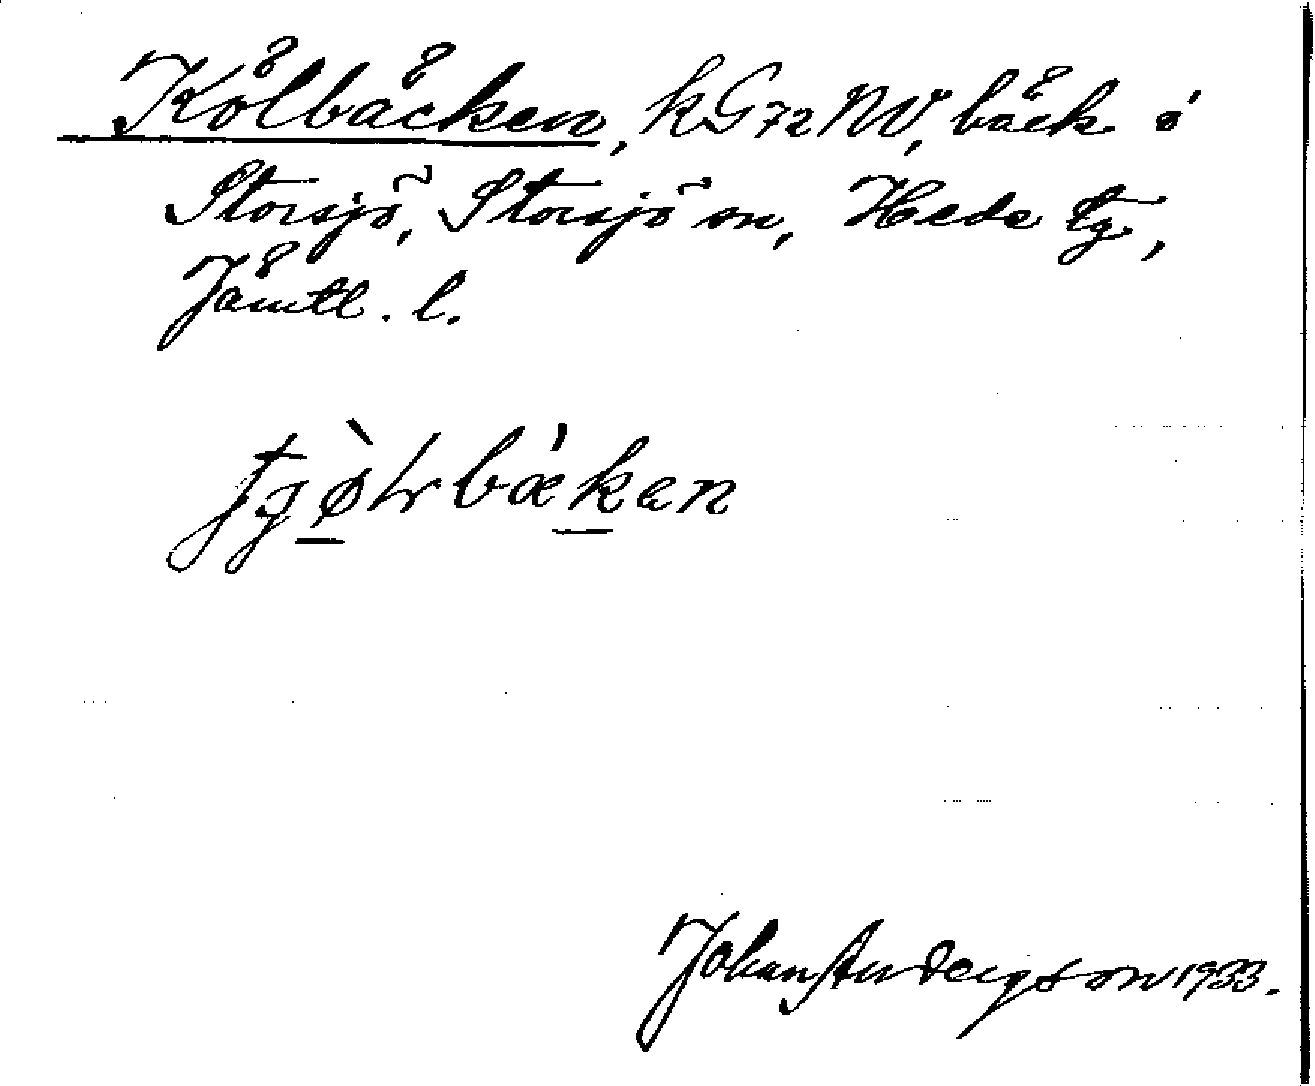 Kölbäcken, kG72NV, bäck i
Storsjö, Storsjö sn, Hede tg,
Jämtl. l.
Johan Andersson 1933.